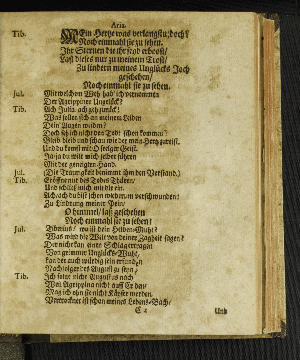 Aria.
Tib. MEin Hertze was verlangstu, doch?
Noch einmahl sie zu sehen.
Ihr Sternen die ihr seyd erbost/
Last dieses nur zu meinem Trost/
Zu lindern meines Unglücks Joch
geschehen/
Noch einmahl sie zu sehen.
Jul. Mit welchem Weh hab ich vernommen
Der Agrippine Ungelück?
Tib. Ach Julia, ach geh zurück!
Was soltet sich an meinem Leiden
Dein Augen weiden?
Doch seh ich nicht den Todt schon kommen?
Bleib/ bleib und schau wie der mein Hertz zerreist.
Und du komst mit O seeliger Geist.
Ja/ ja du wilt mich selber führen
Mit der
Jul. (Die Traurigkeit benimmt ihm den Verstand.)
Tib. Eröffne mir des Todes Thüren/
Und schleuß mich mit dir ein.
Ach/ ach du bist schon wieder verschwunden!
Zu Lindrung meiner Pein/
O himmel/ last geschehen
Noch einmahl sie zu sehen!
Jul. Tiberius/ wo ist dein Helden-Muht?
Was wird die Welt von deiner Zagheit sagen?
Der nicht kan einen Schlag ertragen
Von grimmer Unglücks-Wuht/
kan der auch würdig sein erfunden
Nachfolger des Augusti zu seyn/
Tib. Ich folge nicht Augustus nach
Weil Agrippina nicht auff Erden/
Mag ich ohn sie nicht Käyser werden.
Vertrocknet ist schon meines Lebens-Bach/
Und